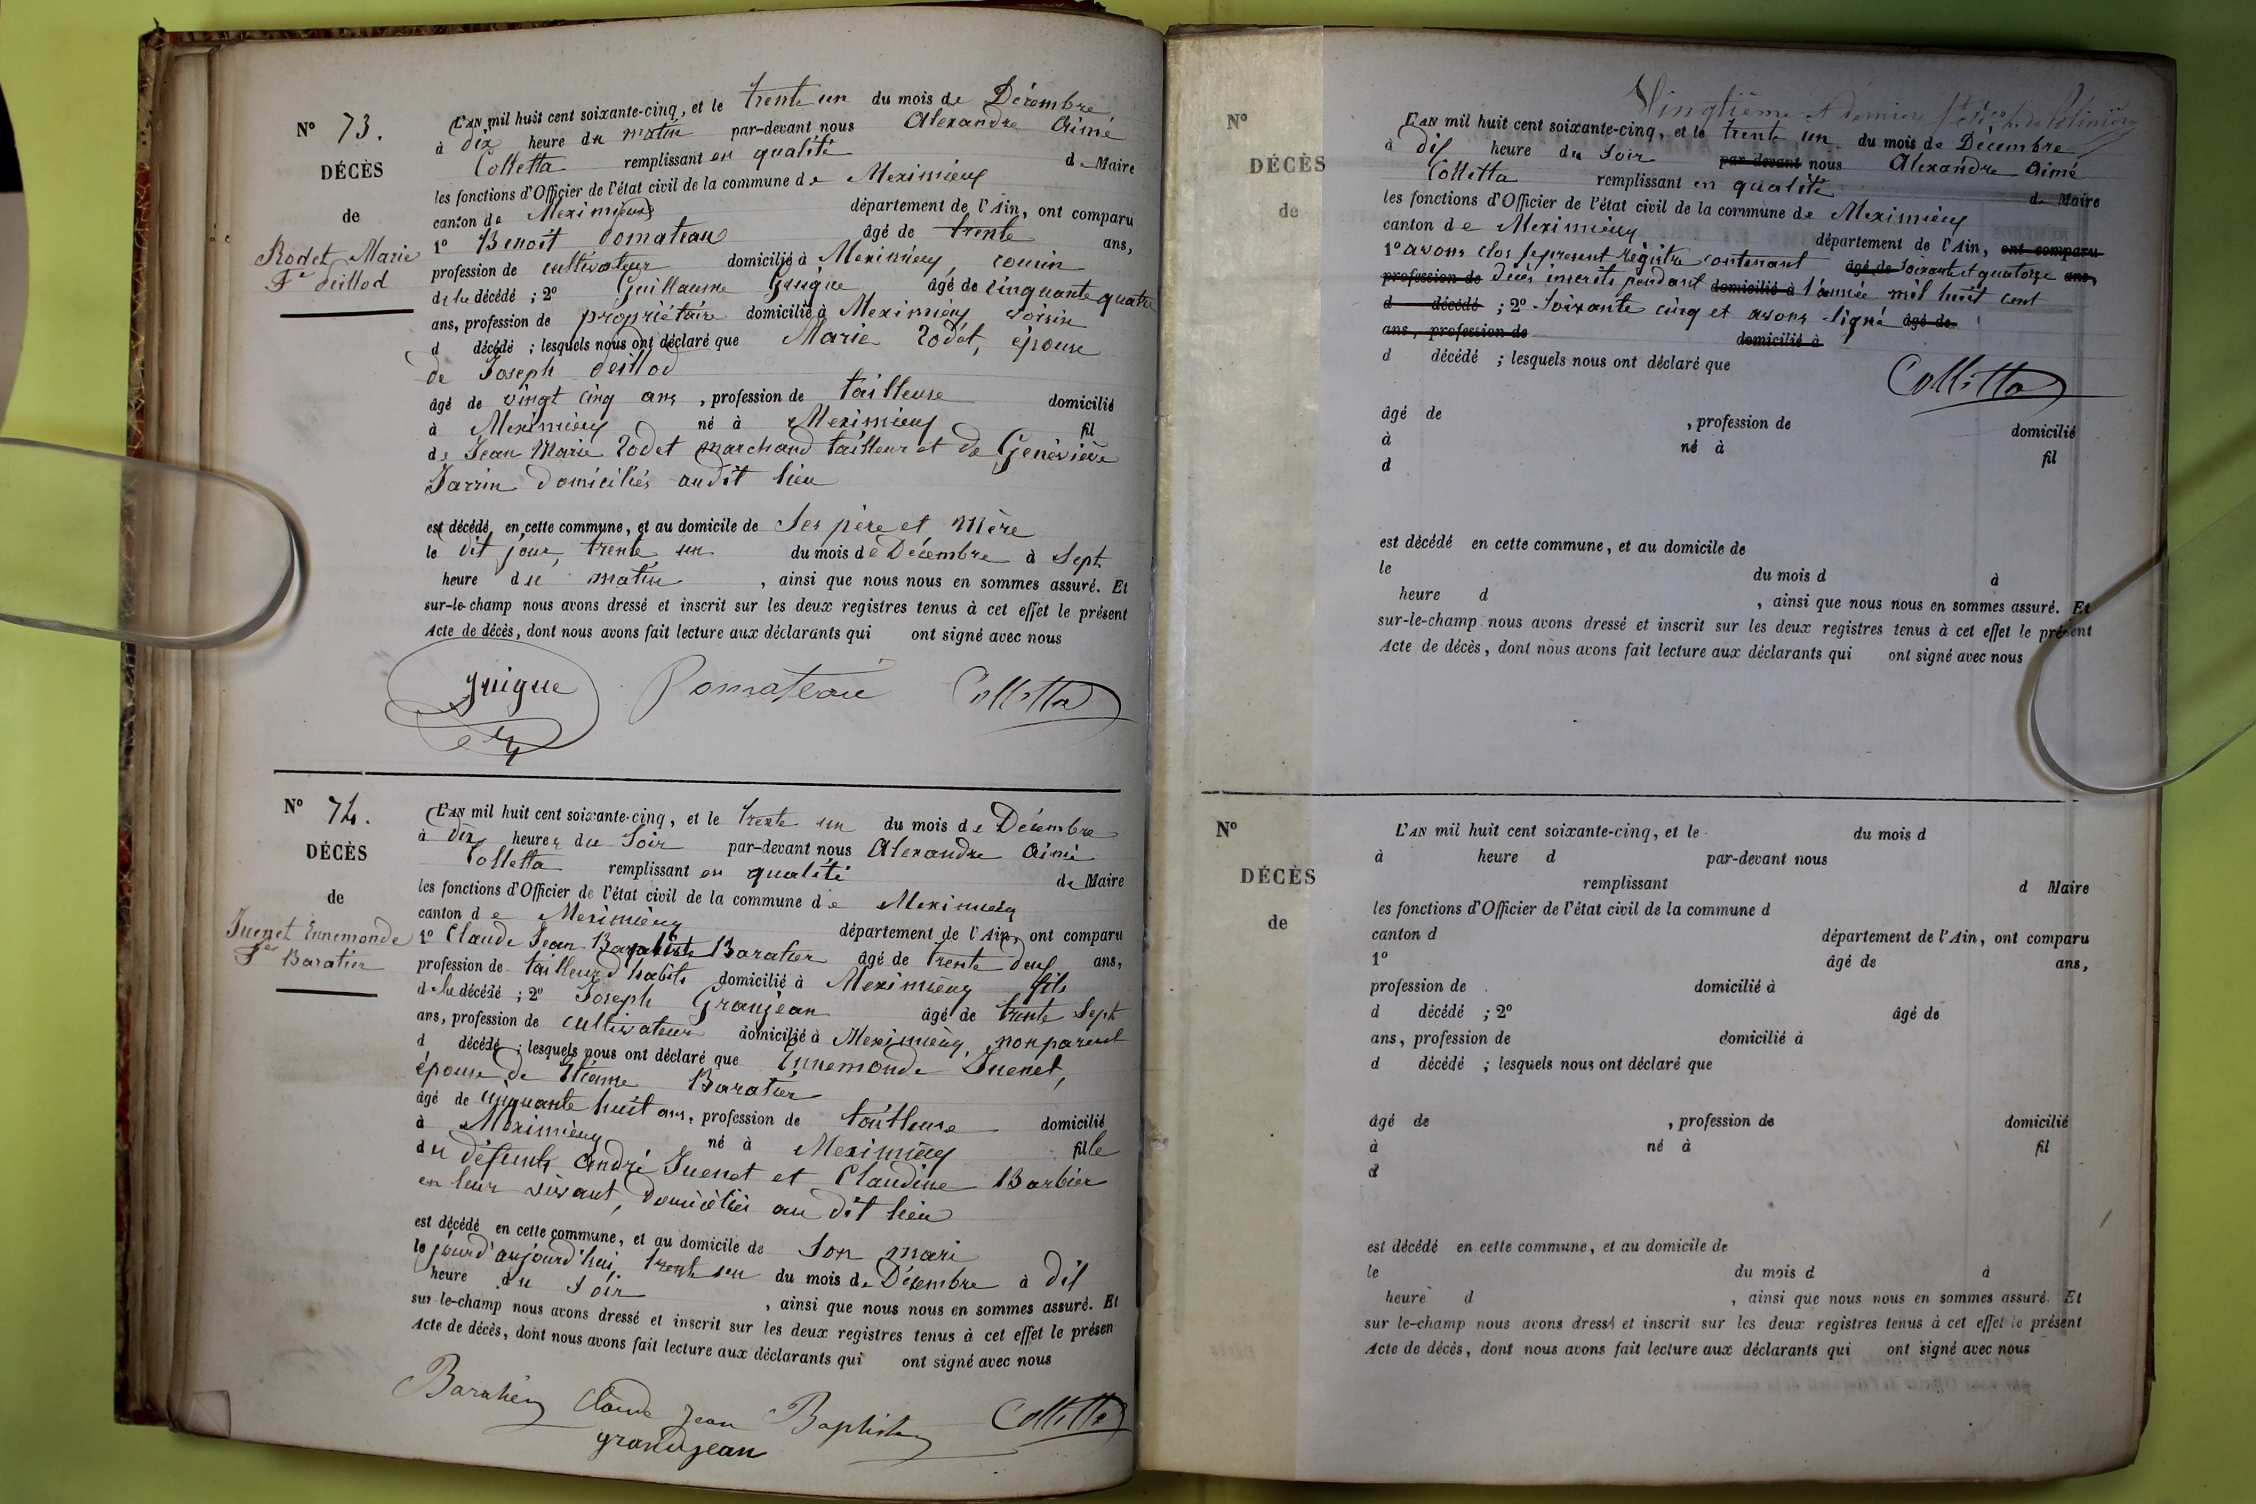 N° 73.
DÉCÈS
de
Rodet Marie
Fe
L'AN mil huit cent soixante-cinq, et le trente un du mois de Décembre
à dix heure du matin par-devant nous Alexandre Aimé
Colletta remplissant en qualité de Maire
les fonctions d'Officier de l'état civil de la commune de Meximieux
canton de Meximieux département de l'Ain, ont comparu
1° Benoit Pomateau âgé de trente ans,
profession de cultivateur domicilié à Meximieux, cousin
de la décédé ; 2° Guillaume Guigue âgé de cinquante quatre
ans, profession de propriétaire domicilié à Meximieux voisin
d décédé ; lesquels nous ont déclaré que Marie Rodet, épouse
de Joseph
âgé de vingt cinq ans , profession de tailleuse domicilié
à Meximieux né à Meximieux fil
de Jean Marie Rodet marchand tailleur et de Geneviève
Jarrin domiciliés audit lieu
est décédé en cette commune, et au domicile de Ses père et mère
le dit jour, trente un du mois de Décembre à Sept
heure du matin , ainsi que nous nous en sommes assuré. Et
sur-le-champ nous avons dressé et inscrit sur les deux registres tenus à cet effet le présent
Acte de décès, dont nous avons fait lecture aux déclarants qui ont signé avec nous
guigue Pomateau Colletta
N° 74.
DÉCÈS
de
Juenet Ennemonde
Fe Baratier
L'AN mil huit cent soixante-cinq, et le trente un du mois de Décembre
à dix heures du Soir par-devant nous Alexandre Aimé
Colletta remplissant en qualité de Maire
les fonctions d'Officier de l'état civil de la commune de Meximieux
canton de Meximieux département de l'Ain, ont comparu
1° Claude Jean Baptiste Baratier âgé de trente deux ans,
profession de tailleur d'habits domicilié à Meximieux fils
de la décédé ; 2° Joseph Granjean âgé de trente Sept
ans, profession de cultivateur domicilié à Meximieux, non parent
d décédé ; lesquels nous ont déclaré que Ennemonde Juenet,
épouse de Etienne Baratier
âgé de cinquante huit ans, profession de tailleuse domicilié
à Meximieux né à Meximieux fille
du défunts André Juenet et Claudine Barbier
en leur vivant, domiciliés au dit lieu
est décédé en cette commune, et au domicile de Son mari
le jourd'aujourd'hui, trente un du mois de Décembre à dix
heure du Soir , ainsi que nous nous en sommes assuré. Et
sur le-champ nous avons dressé et inscrit sur les deux registres tenus à cet effet le présen
Acte de décès, dont nous avons fait lecture aux déclarants qui ont signé avec nous
Baratier Claude Jean Baptiste Colletta
grandjean
Vingtième & dernier
N°
DÉCÈS
de
L'AN mil huit cent soixante-cinq, et le trente un du mois de Décembre
à dix heure du Soir par-devant nous Alexandre Aimé
Colletta remplissant en qualité de Maire
les fonctions d'Officier de l'état civil de la commune de Meximieux
canton de Meximieux département de l'Ain, ont comparu
1° avons clos le present régistre contenant âgé de soixante et quatorze ans,
profession de décès inscrits pendant domicilié à l'année mil huit cent
d décédé ; 2° Soixante cinq et avons signé âgé de
ans, profession de domicilié à
d décédé ; lesquels nous ont déclaré que
Colletta
âgé de , profession de domicilié
à né à fil
d
est décédé en cette commune, et au domicile de
le du mois d à
heure d , ainsi que nous nous en sommes assuré. Et
sur-le-champ nous avons dressé et inscrit sur les deux registres tenus à cet effet le présent
Acte de décès, dont nous avons fait lecture aux déclarants qui ont signé avec nous
N°
DÉCÈS
de
L'AN mil huit cent soixante-cinq, et le du mois d
à heure d par-devant nous
remplissant d Maire
les fonctions d'Officier de l'état civil de la commune d
canton d département de l'Ain, ont comparu
1° âgé de ans,
profession de domicilié à
d décédé ; 2° âgé de
ans, profession de domicilié à
d décédé ; lesquels nous ont déclaré que
âgé de , profession de domicilié
à né à fil
d
est décédé en cette commune, et au domicile de
le du mois d à
heure d , ainsi que nous nous en sommes assuré. Et
sur le-champ nous avons dressé et inscrit sur les deux registres tenus à cet effet le présent
Acte de décès, dont nous avons fait lecture aux déclarants qui ont signé avec nous